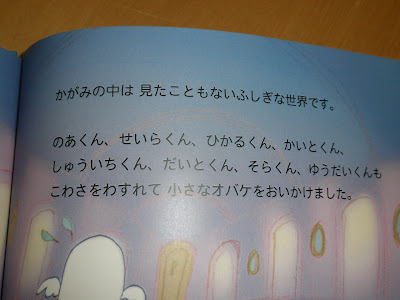 かがみの中は 見たこともないふしぎな世界です。
のあくん、せいらくん、ひかるくん、かいとくん、
しゅういちくん、だいとくん、そらくん、ゆうだいくんも
こわさをわすれて 小さなオバケをおいかけました。